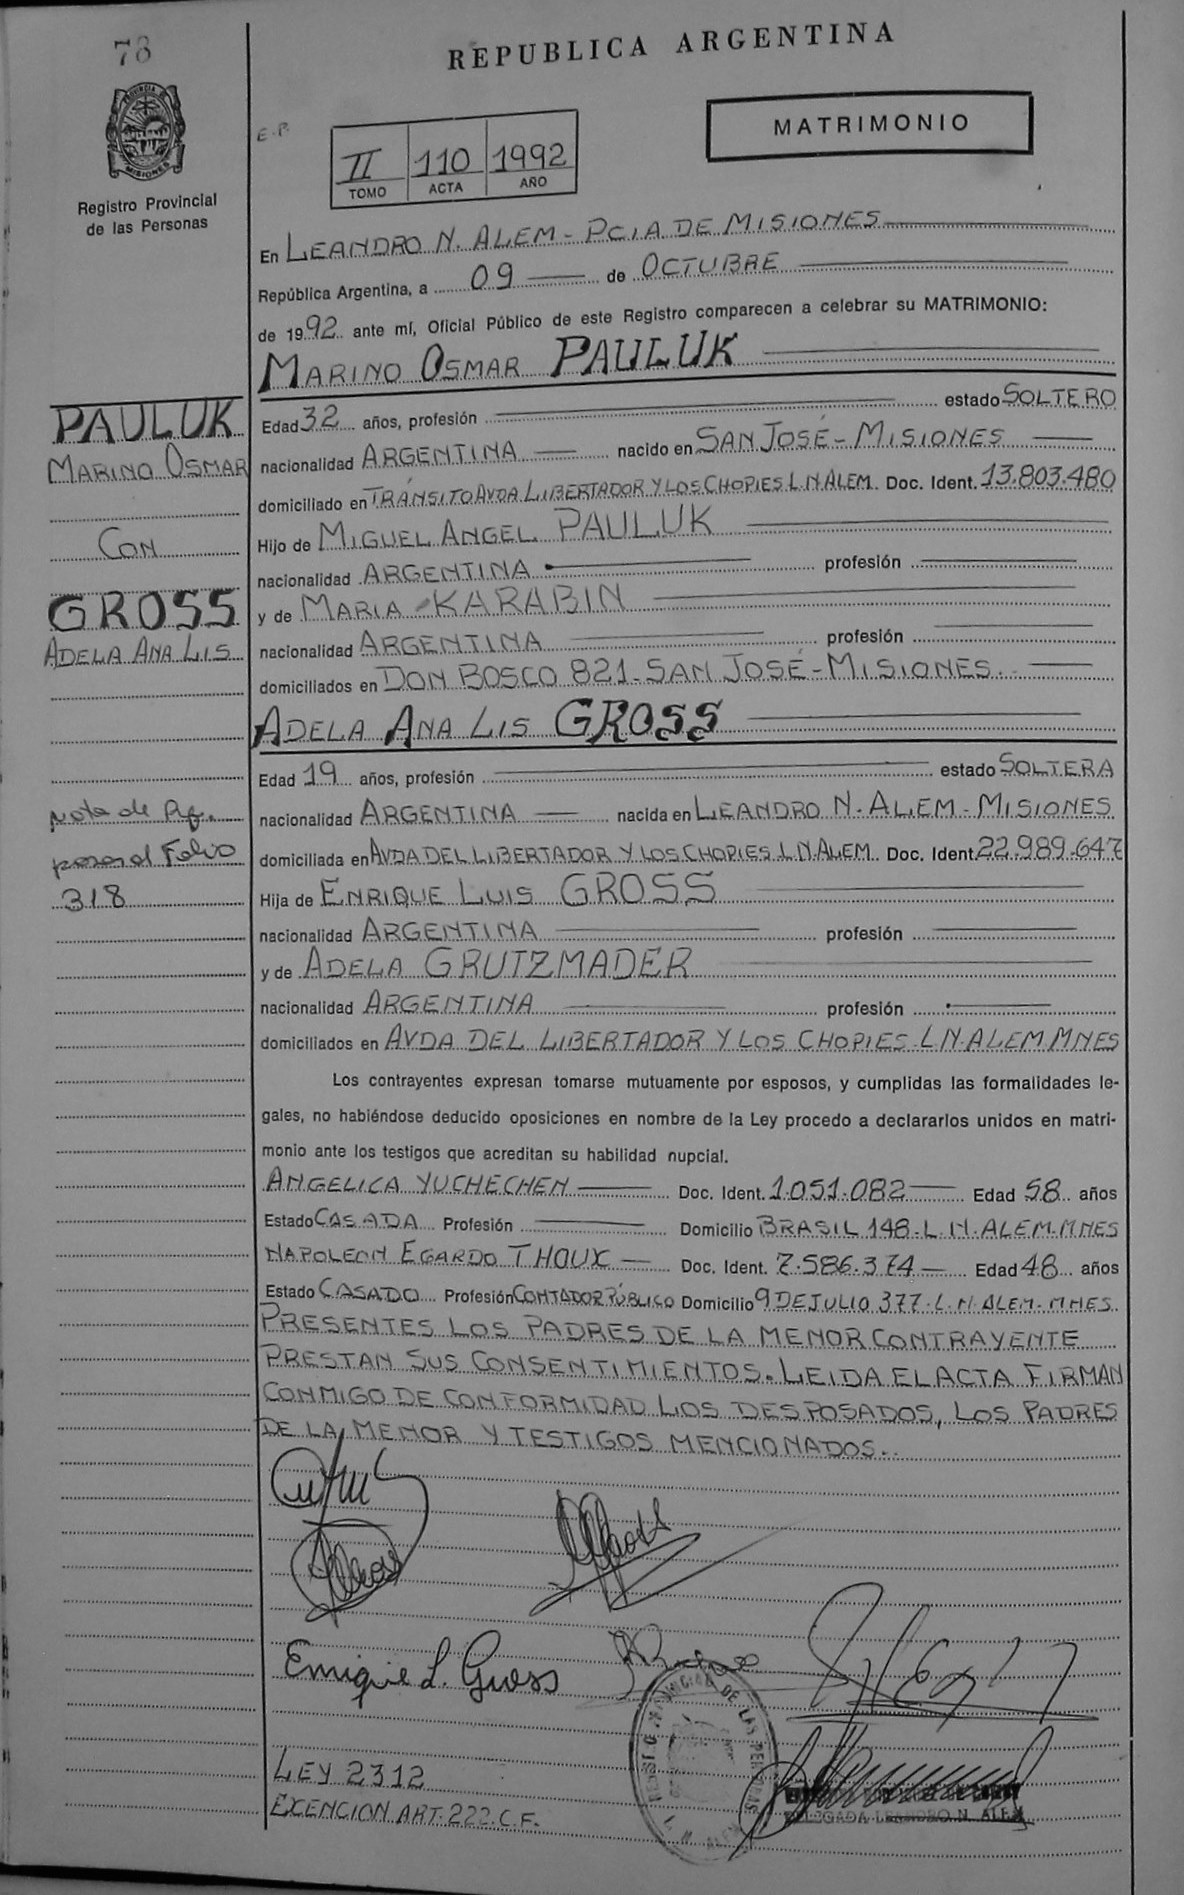 78
REPUBLICA ARGENTINA
PROVINCIA DE MISIONES
Registro Provincial
de las Personas
E.P.
II 110 1992
TOMO ACTA AÑO
MATRIMONIO
En LEANDRO N. ALEM - PCIA DE MISIONES
República Argentina, a 09 de OCTUBRE
de 1992 ante mí, Oficial Público de este Registro comparecen a celebrar su MATRIMONIO:
MARINO OSMAR PAULUK
PAULUK
MARINO OSMAR
CON
GROSS
ADELA ANA LIS
Edad 32 años, profesión estado SOLTERO
nacionalidad ARGENTINA nacido en SAN JOSÉ - MISIONES
domiciliado en TRÁNSITO AVDA LIBERTADOR Y LOS CHOPIES L N ALEM Doc. Ident. 13.803.480
Hijo de MIGUEL ANGEL PAULUK
nacionalidad ARGENTINA profesión
y de MARIA KARABIN
nacionalidad ARGENTINA profesión
domiciliados en DON BOSCO 821 - SAN JOSÉ - MISIONES.
ADELA ANA LIS GROSS
Edad 19 años, profesión estado SOLTERA
nacionalidad ARGENTINA nacida en LEANDRO N. ALEM - MISIONES
domiciliada en AVDA DEL LIBERTADOR Y LOS CHOPIES L N ALEM Doc. Ident. 22.989.647
Hija de ENRIQUE LUIS GROSS
nacionalidad ARGENTINA profesión
y de ADELA GRUTZMADER
nacionalidad ARGENTINA profesión
domiciliados en AVDA DEL LIBERTADOR Y LOS CHOPIES - L N. ALEM MNES
Nota de
Folio
318
Los contrayentes expresan tomarse mutuamente por esposos, y cumplidas las formalidades le-
gales, no habiéndose deducido oposiciones en nombre de la Ley procedo a declararlos unidos en matri-
monio ante los testigos que acreditan su habilidad nupcial.
ANGELICA YUCHECHEN Doc. Ident. 1.051.082 Edad 58 años
Estado CASADA Profesión Domicilio BRASIL 148 - L. N. ALEM. MNES
NAPOLEON EGARDO THOUX Doc. Ident. 7.586.374 Edad 48 años
Estado CASADO Profesión CONTADOR PÚBLICO Domicilio 9 DE JULIO 377 - L. N. ALEM - MNES.
PRESENTES LOS PADRES DE LA MENOR CONTRAYENTE
PRESTAN SUS CONSENTIMIENTOS. LEIDA EL ACTA FIRMAN
CONMIGO DE CONFORMIDAD LOS DESPOSADOS, LOS PADRES
DE LA MENOR Y TESTIGOS MENCIONADOS.
Enrique L. Gross
LEY 2312
EXENCION ART. 222 C.F.
DELEGADA LEANDRO N. ALEM